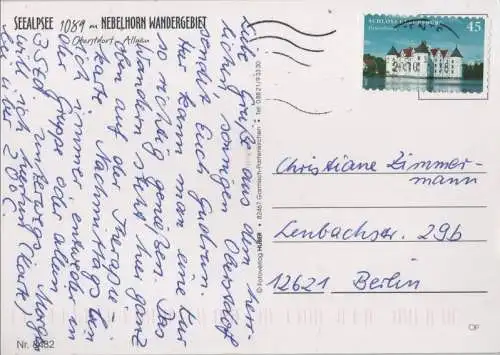 SEEALPSEE 1089 m NEBELHORN WANDERGEBIET
Oberstdorf - Allgäu
Liebe Grüße aus dem herr-
lichen, sonnigen Oberstdorf
sendet Euch Gudrun.
Hier kann man eine Kur
so richtig genießen. Das
Wandern steht hier ganz
oben auf der Therapie-
karte. Nachmittags bin
ich immer entweder in
der Gruppe oder allein
3 Std. unterwegs. Morgen
will ich
bei über 20°C.
© Fotoverlag HUBER • 82467 Garmisch-Partenkirchen • Tel. 08821/93330
SCHLOSS GLÜCKSBURG
45
Christiane Zimmer-
mann
Lenbachstr. 29b
12621 Berlin
Nr. 8482